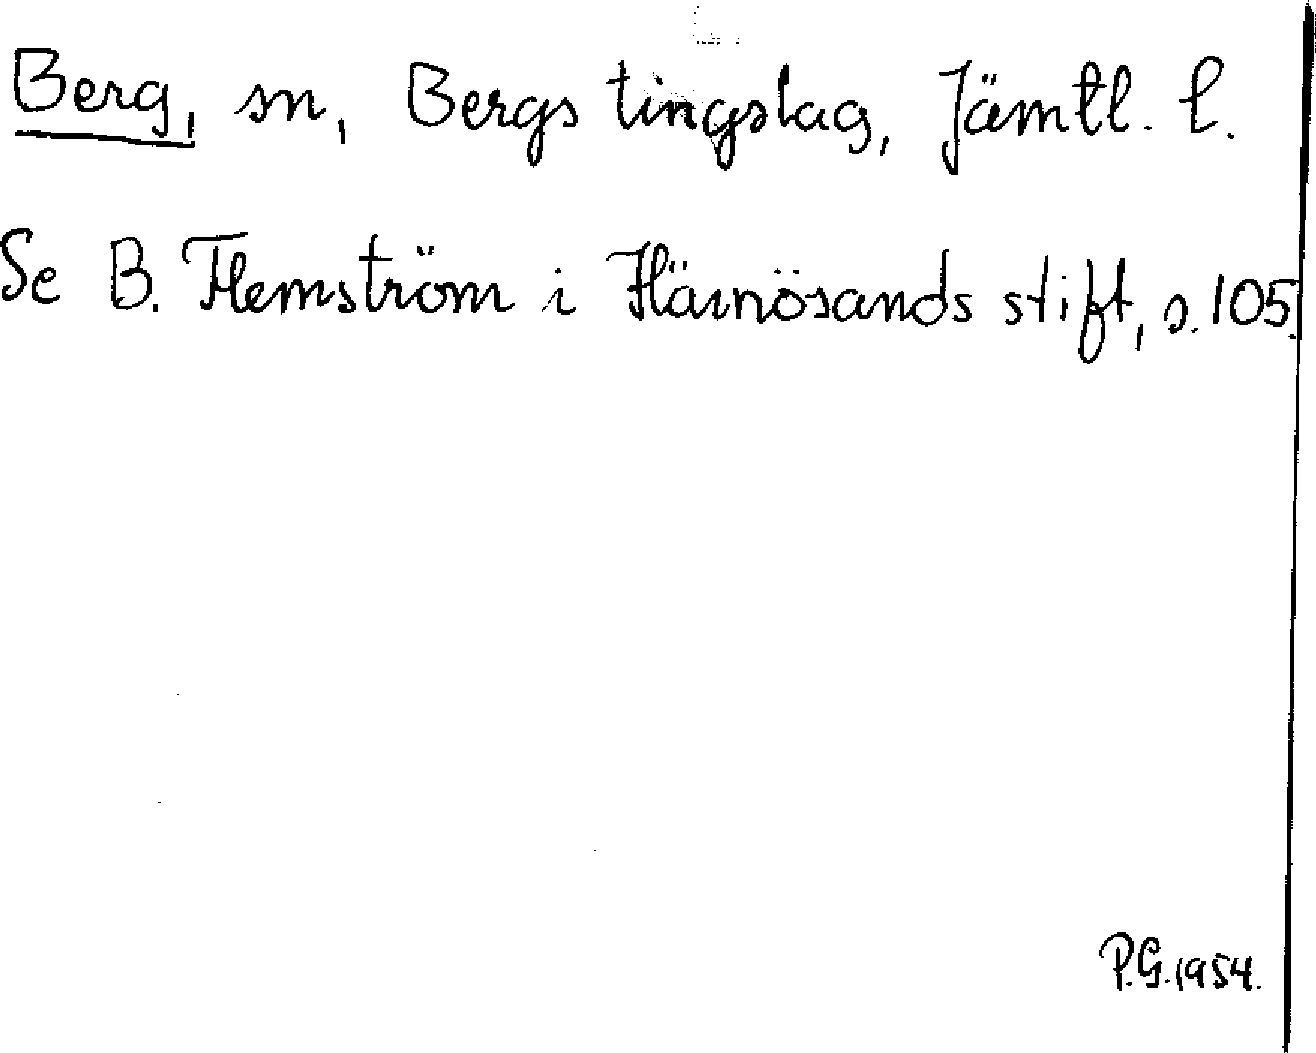 Berg, sn, Bergs tingslag, Jämtl. l.
Se B. Hemström i Härnösands stift, s. 105.
P.G. 1954.